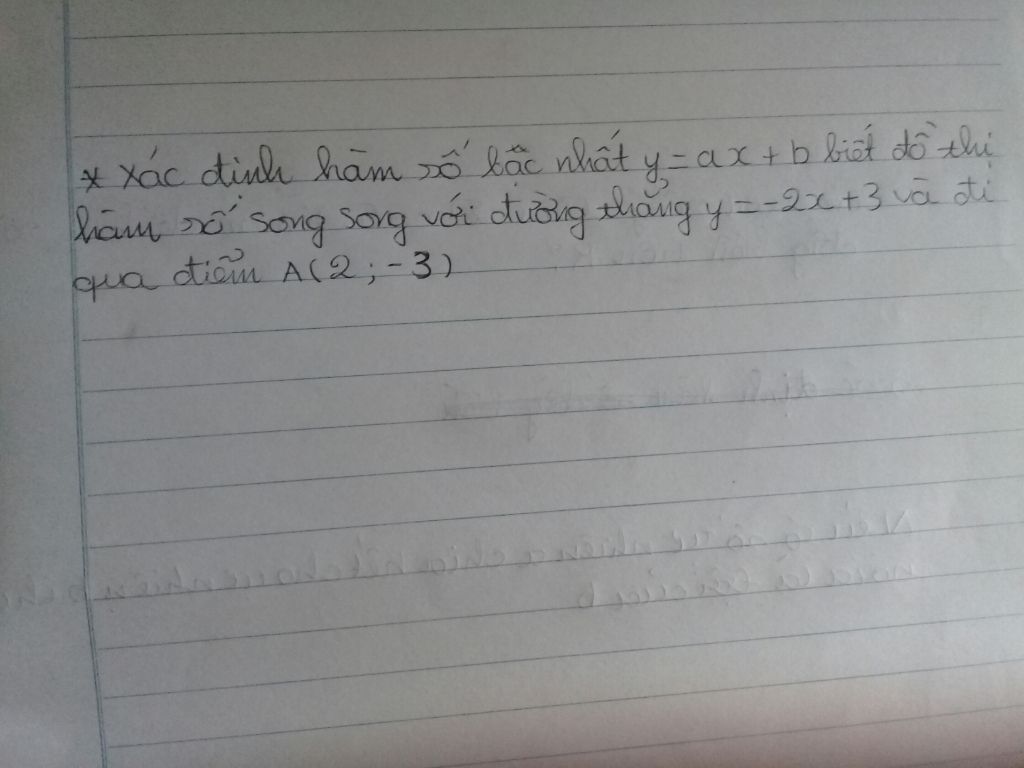 * Xác định hàm số bậc nhất y = ax + b biết đồ thị
hàm số song song với đường thẳng y = -2x + 3 và đi
qua điểm A(2 ; -3)